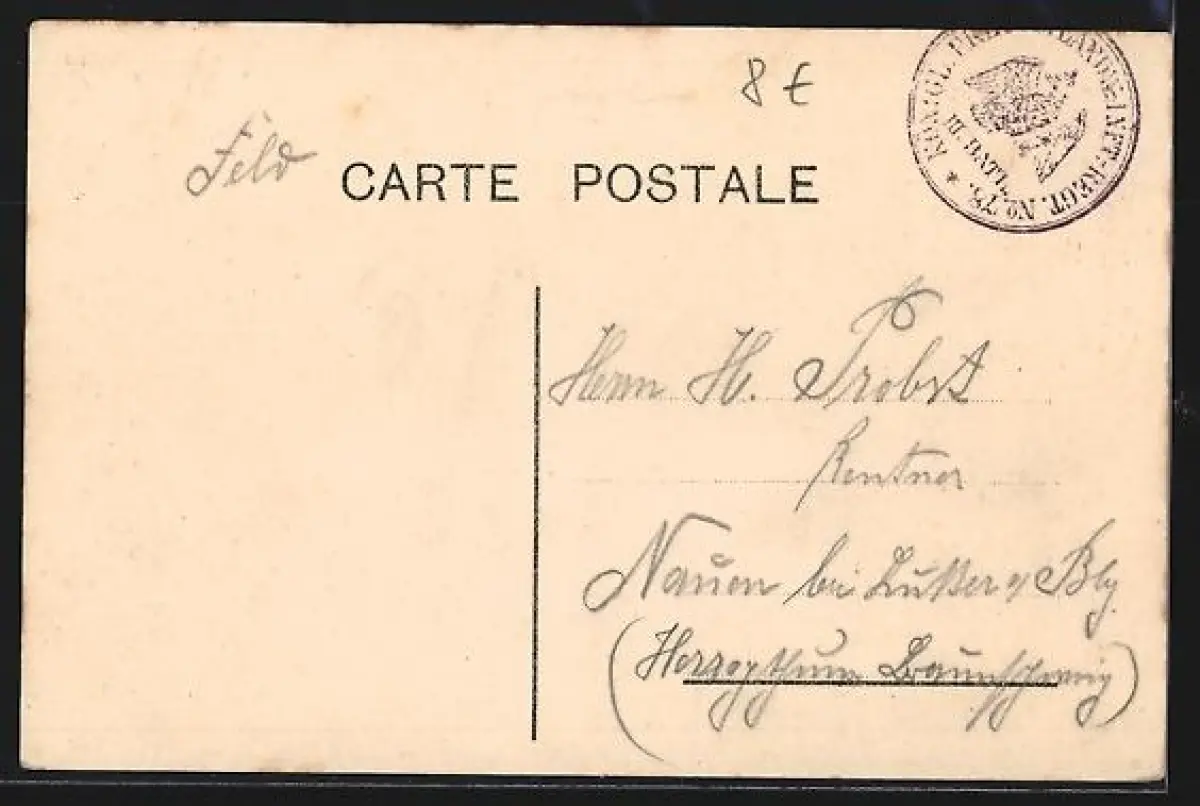 8 €
KÖNIGL. PREUSS. LANDW.-INFT.-REGT. No. 75. *
II. BATL.
Feld
CARTE POSTALE
Herrn H. Probst
Rentner
Nauen bei Lutter a/ Bbg
(Herzogthum Braunschweig)